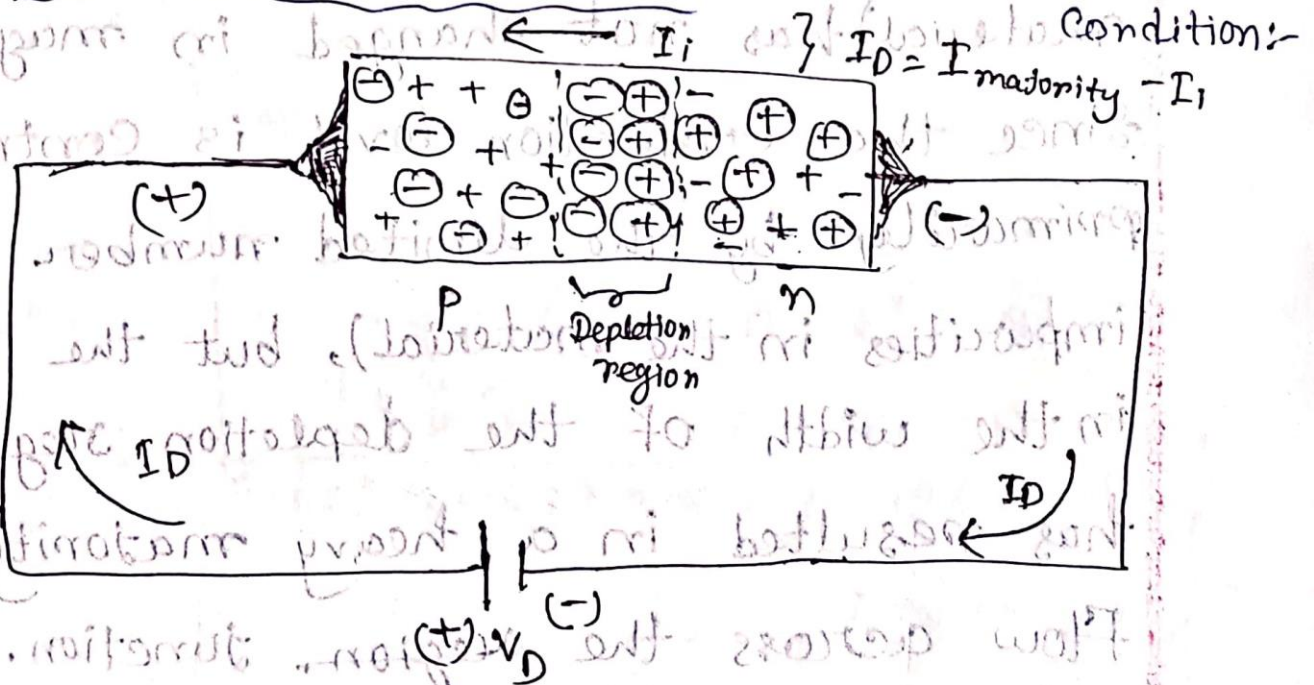 Condition:-
Iᵢ } I_D = I_majority - I₁
⊖ + + ⊖ ⊖ ⊕ - ⊕ ⊕
- ⊖ + ⊖ ⊕ ⊕
⊖ + ⊖ + ⊖ ⊕ - ⊕ + -
+ ⊖ + ⊖ ⊕ ⊕ - + ⊕
(+) (-)
P Depletion n
region
I_D I_D
(+) V_D (-)